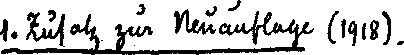 1. Zusatz zur Neuauflage (1918).